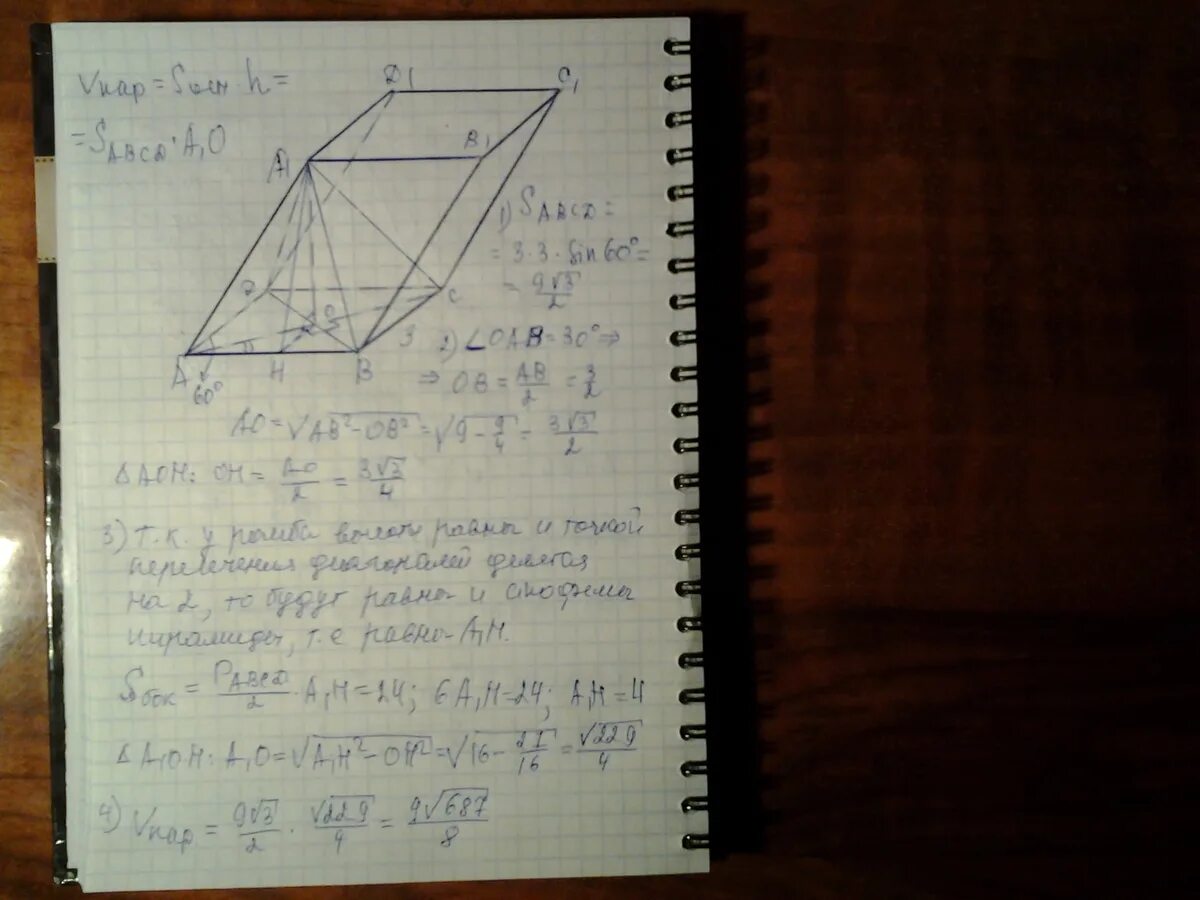 Vпар = Sосн · h =
= SABCD · A₁O
D₁
C₁
B₁
A₁
1) SABCD =
= 3 · 3 · sin 60° =
= 9√3/2
D
C
O
3
A
H
B
60°
2) ∠OAB = 30° ⇒
⇒ OB = AB/2 = 3/2
AO = √AB² − OB² = √9 − 9/4 = 3√3/2
ΔAOH: OH = AO/2 = 3√3/4
3) т.к. у ромба высоты равны и точкой
пересечения диагоналей делятся
на 2, то будут равны и апофемы
пирамиды, т.е равно A₁H.
Sбок = PABCD/2 · A₁H = 24; 6A₁H = 24; A₁H = 4
ΔA₁OH: A₁O = √A₁H² − OH² = √16 − 27/16 = √229/4
4) Vпар = 9√3/2 · √229/4 = 9√687/8